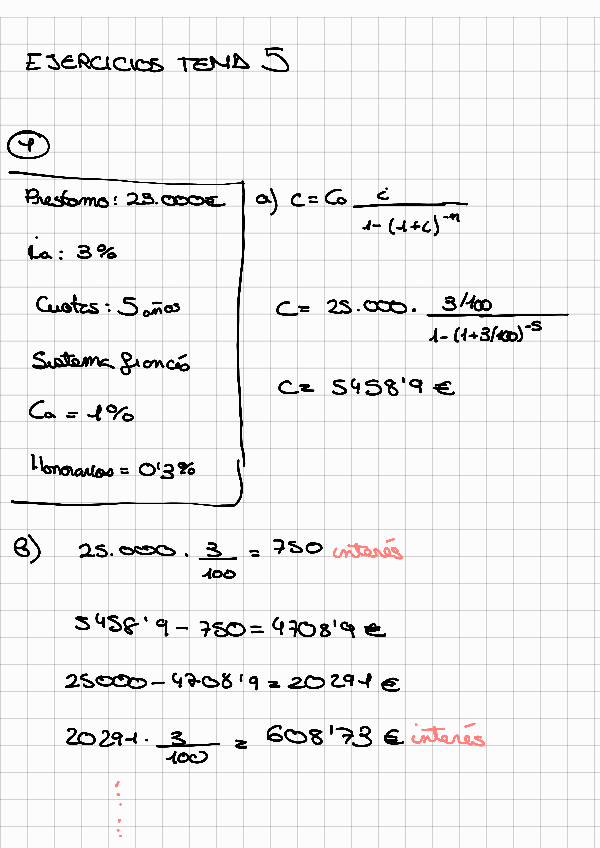 EJERCICIOS TEMA 5
1
Prestamo: 25.000€
ia: 3%
Cuotas: 5 años
Sistema francés
Ca = 1%
Honorarios = 0'3%
a) C = Co i / 1-(1+i)^-n
C = 25.000 · 3/100 / 1-(1+3/100)^-5
C = 5458'9 €
b) 25.000 · 3/100 = 750 interés
5458'9 - 750 = 4708'9 €
25000 - 4708'9 = 20291 €
20291 · 3/100 = 608'73 € interés